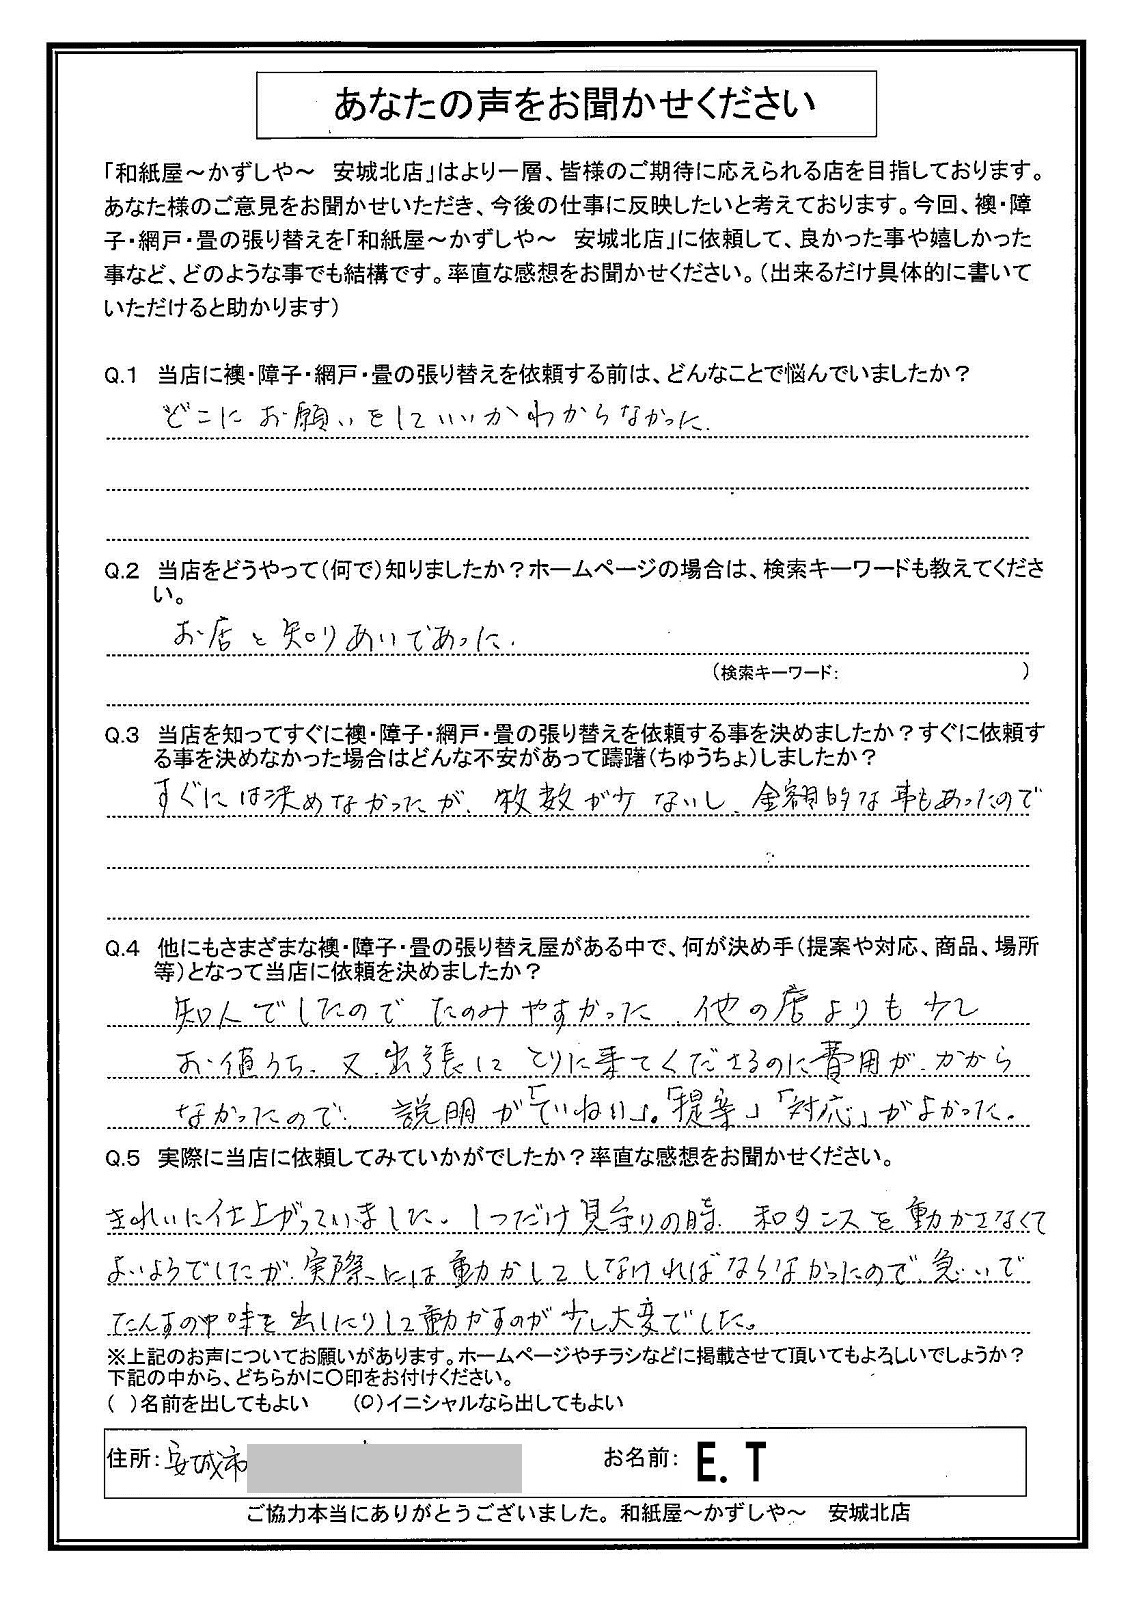 あなたの声をお聞かせください
「和紙屋～かずしや～　安城北店」はより一層、皆様のご期待に応えられる店を目指しております。
あなた様のご意見をお聞かせいただき、今後の仕事に反映したいと考えております。今回、襖・障
子・網戸・畳の張り替えを「和紙屋～かずしや～　安城北店」に依頼して、良かった事や嬉しかった
事など、どのような事でも結構です。率直な感想をお聞かせください。（出来るだけ具体的に書いて
いただけると助かります）
Q.1　当店に襖・障子・網戸・畳の張り替えを依頼する前は、どんなことで悩んでいましたか？
どこにお願いをしていいかわからなかった.
Q.2　当店をどうやって（何で）知りましたか？ホームページの場合は、検索キーワードも教えてくださ
い。
お店と知りあいであった.
（検索キーワード：　　　　　　　　　　）
Q.3　当店を知ってすぐに襖・障子・網戸・畳の張り替えを依頼する事を決めましたか？すぐに依頼す
る事を決めなかった場合はどんな不安があって躊躇（ちゅうちょ）しましたか？
すぐには決めなかったが、枚数が少ないし、金額的な事もあったので
Q.4　他にもさまざまな襖・障子・畳の張り替え屋がある中で、何が決め手（提案や対応、商品、場所
等）となって当店に依頼を決めましたか？
知人でしたので たのみやすかった、他の店よりも少し
お値うち、又、出張に とりに来てくださるのに費用が、かから
なかったので、 説明が「ていねい」。「提案」「対応」がよかった。
Q.5　実際に当店に依頼してみていかがでしたか？率直な感想をお聞かせください。
きれいに仕上がっていました。1つだけ見守りの時、和タンスを動かさなくて
よいようでしたが、実際には動かしてしなければならなかったので、急いで
たんすの中味を出しにりして動かすのが少し大変でした。
※上記のお声についてお願いがあります。ホームページやチラシなどに掲載させて頂いてもよろしいでしょうか？
下記の中から、どちらかに〇印をお付けください。
（　）名前を出してもよい　　（○）イニシャルなら出してもよい
住所：安城市　　お名前：E. T
ご協力本当にありがとうございました。和紙屋～かずしや～　安城北店